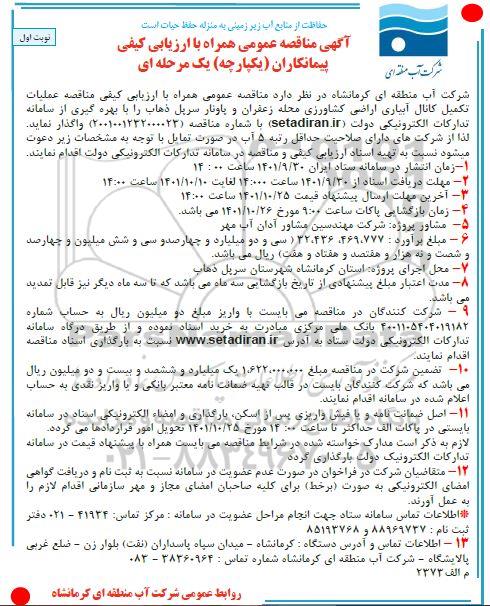 حفاظت از منابع آب زیر زمینی به منزله حفظ حیات است
نوبت اول
آگهی مناقصه عمومی همراه با ارزیابی کیفی
پیمانکاران (یکپارچه) یک مرحله ای
شرکت آب منطقه ای
شرکت آب منطقه ای کرمانشاه در نظر دارد مناقصه عمومی همراه با ارزیابی کیفی مناقصه عملیات
تکمیل کانال آبیاری اراضی کشاورزی محله زعفران و پاونار سرپل ذهاب را با بهره گیری از سامانه
تدارکات الکترونیکی دولت (setadiran.ir) با شماره مناقصه (۲۰۰۱۰۰۱۲۳۲۰۰۰۰۲۳) واگذار نماید.
لذا از شرکت های دارای صلاحیت حداقل رتبه ۵ آب در صورت تمایل با توجه به مشخصات زیر دعوت
میشود نسبت به تهیه اسناد ارزیابی کیفی و مناقصه در سامانه تدارکات الکترونیکی دولت اقدام نمایند.
۱-زمان انتشار در سامانه ستاد ایران ۱۴۰۱/۹/۳۰ ساعت ۰۰ : ۱۴
۲- مهلت دریافت اسناد از ۱۴۰۱/۹/۳۰ ساعت ۱۴:۰۰۰ لغایت ۱۴۰۱/۱۰/۱۰ ساعت ۱۴:۰۰
۳- آخرین مهلت ارسال پیشنهاد قیمت ۱۴۰۱/۱۰/۲۵ ساعت ۱۴:۰۰
۴- زمان بازگشایی پاکات ساعت ۹:۰۰ مورخ ۱۴۰۱/۱۰/۲۶ می باشد.
۵- مشاور پروژه: شرکت مهندسین مشاور آدان آب مهر
۶- مبلغ برآورد : ۳۲،۴۳۶،۴۶۹،۷۷۷ ( سی و دو میلیارد و چهارصدو سی و شش میلیون و چهارصد
و شصت و نه هزار و هفتصد و هفتاد و هفت) ریال می باشد.
۷- محل اجرای پروژه: استان کرمانشاه شهرستان سرپل ذهاب
۸- مدت اعتبار مبلغ پیشنهادی از تاریخ بازگشایی سه ماه می باشد که تا سه ماه دیگر نیز قابل تمدید
می باشد.
۹- شرکت کنندگان در مناقصه می بایست با واریز مبلغ دو میلیون ریال به حساب شماره
۴۰۰۱۱۰۵۴۰۴۰۱۹۱۸۲ بانک ملی مرکزی مبادرت به خرید اسناد نموده و از طریق درگاه سامانه
تدارکات الکترونیکی دولت ستاد به آدرس www.setadiran.ir نسبت به بارگذاری اسناد مناقصه
اقدام نمایند.
۱۰- تضمین شرکت در مناقصه مبلغ ۱،۶۲۲،۰۰۰،۰۰۰ یک میلیارد و ششصد و بیست و دو میلیون ریال
می باشد که شرکت کنندگان بایست در قالب تهیه ضمانت نامه معتبر بانکی و یا واریز نقدی به حساب
اعلام شده در سامانه اقدام نمایند.
۱۱- اصل ضمانت نامه و یا فیش واریزی پس از اسکن، بارگذاری و امضاء الکترونیکی اسناد در سامانه
بایستی در پاکات الف حداکثر تا ساعت ۰۰: ۱۴ مورخ ۱۴۰۱/۱۰/۲۵ تحویل امور قراردادها می گردد.
لازم به ذکر است مدارک خواسته شده در شرایط مناقصه می بایست همراه با پیشنهاد قیمت در سامانه
تدارکات الکترونیک دولت بارگذاری گردد
۱۲- متقاضیان شرکت در فراخوان در صورت عدم عضویت در سامانه نسبت به ثبت نام و دریافت گواهی
امضای الکترونیکی به صورت (برخط) برای کلیه صاحبان امضای مجاز و مهر سازمانی اقدام لازم را
به عمل آورند.
*اطلاعات تماس سامانه ستاد جهت انجام مراحل عضویت در سامانه : مرکز تماس: ۴۱۹۳۴ - ۰۲۱ دفتر
ثبت نام : ۸۸۹۶۹۷۳۷ و ۸۵۱۹۳۷۶۸
۱۳- اطلاعات تماس و آدرس دستگاه : کرمانشاه - میدان سپاه پاسداران (نفت) بلوار زن - ضلع غربی
پالایشگاه - شرکت آب منطقه ای کرمانشاه شماره تماس : ۳۸۳۶۰۹۶۴ - ۰۸۳
م الف۲۳۷۳
روابط عمومی شرکت آب منطقه ای کرمانشاه